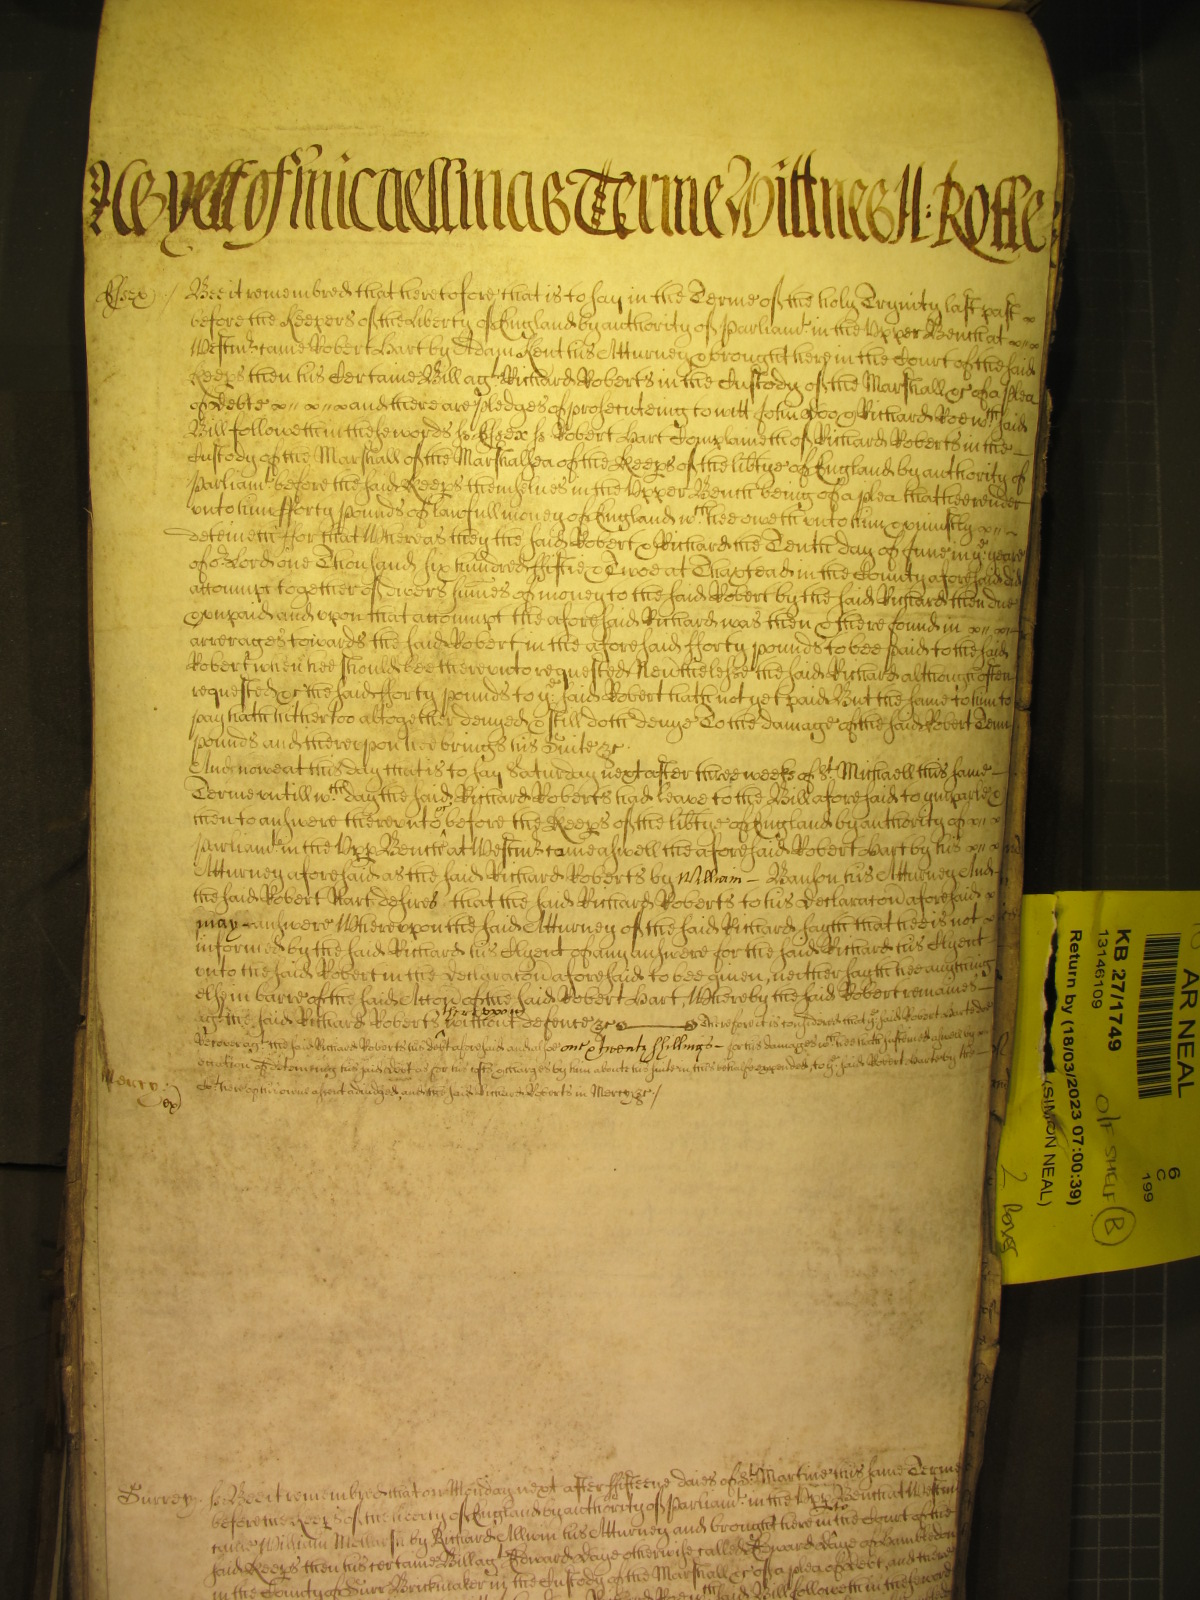 As yett of Micaellmas Terme Wittnes H: Rolle
Essex / Bee it remembred that heretofore that is to say in the Terme of the holy Trynity last past
before the Keepers of the liberty of England by authority of Parliamt in the Upper Bench at
Westmr came Robert Hart by Adam Kent his Atturney & brought here in the Court of the said
Keeps then his Certaine Bill agt Richard Roberts in the Custody of the Marshall &c of a plea
of Debte and there are pledges of prosecuteing to witt John Doo & Richard Roe wch said
Bill followeth in these words ss Essex ss Robert Hart Complaineth of Richard Roberts in the
Custody of the Marshall of the Marshallsea of the Keeps of the libtye of England by authority of
Parliamt before the said Keeps themselves in the Upper Bench being of a plea that hee render
unto him fforty pounds of lawfull money of England wch hee oweth unto him & uniustly
deteineth ffor that Whereas they the said Robert & Richard the Tenth day of June in ye yeare
of or Lord one Thousand six hundred ffiftie & Twoe at Thaxtead in the County aforesaid did
accompt together of divers summes of money to the said Robert by the said Richard then due
& unpaid and upon that accompt the aforesaid Richard was then & there found in
arrerages towards the said Robert in the aforesaid fforty pounds to bee paid to the said
Robert when hee should bee thereunto requested Neverthelesse the said Richard although often
requested &c the said fforty pounds to ye said Robert hath not yet paid But the same to him to
pay hath hithertoo altogether denyed & still doth denye To the damage of the said Robert Tenn
pounds and thereupon hee brings his Suite &c
And nowe at this day that is to say Saturday next after three weeks of St Michaell this same
Terme untill wch day the said Richard Roberts had leave to the Bill aforesaid to imparle &
then to answere thereunto before the Keeps of the libtye of England by authority of
Parliamt in the Upp Bench at Westmr came aswell the aforesaid Robert Hart by his
Atturney aforesaid as the said Richard Roberts by William Banson his Atturney And
the said Robert Hart desires that the said Richard Roberts to his declaracon aforesaid
may answere Whereupon the said Atturney of the said Richard sayth that hee is not
informed by the said Richard his Clyent of any answere for the said Richard his Clyent
unto the said Robert in the declaracon aforesaid to bee given, neither sayth hee anything
else in barre of the said Accon of the said Robert Hart, Whereby the said Robert remaines
agt the said Richard Roberts thereupon without defence &c Therefore it is considered that ye said Robert Hart doe
Recover agt the said Richard Roberts his debt aforesaid and alsoe one & twenty shyllings for his damages wch hee hath susteined aswell by
occation of deteineing his said debt as for his costs & charges by him about his suite in this behalfe expended, to ye said Robert Hart by the
Ct here by his owne assent adiudged, and the said Richard Roberts in Mercy &c /
Mercy
Surrey ss Bee it remembred that on Monday next after ffifteene daies of St Martine this same Terme
before the Keeps of the liberty of England by authority of Parliamt in the Upp Bench at Westmr
came William by Richard Allwin his Atturney and brought here in the Court of the
said Keeps then his certaine Bill agt Edward Page otherwise called Edward Page of
in the County of Surr Brickmaker in the Custody of the Marshall &c of a plea of Debt, and there
Bill followeth in these words
AR NEAL
KB 27/1749
13146109
Return by (18/03/2023 07:00:39)
(SIMON NEAL)
6
C
199
O/F SHELF B
2